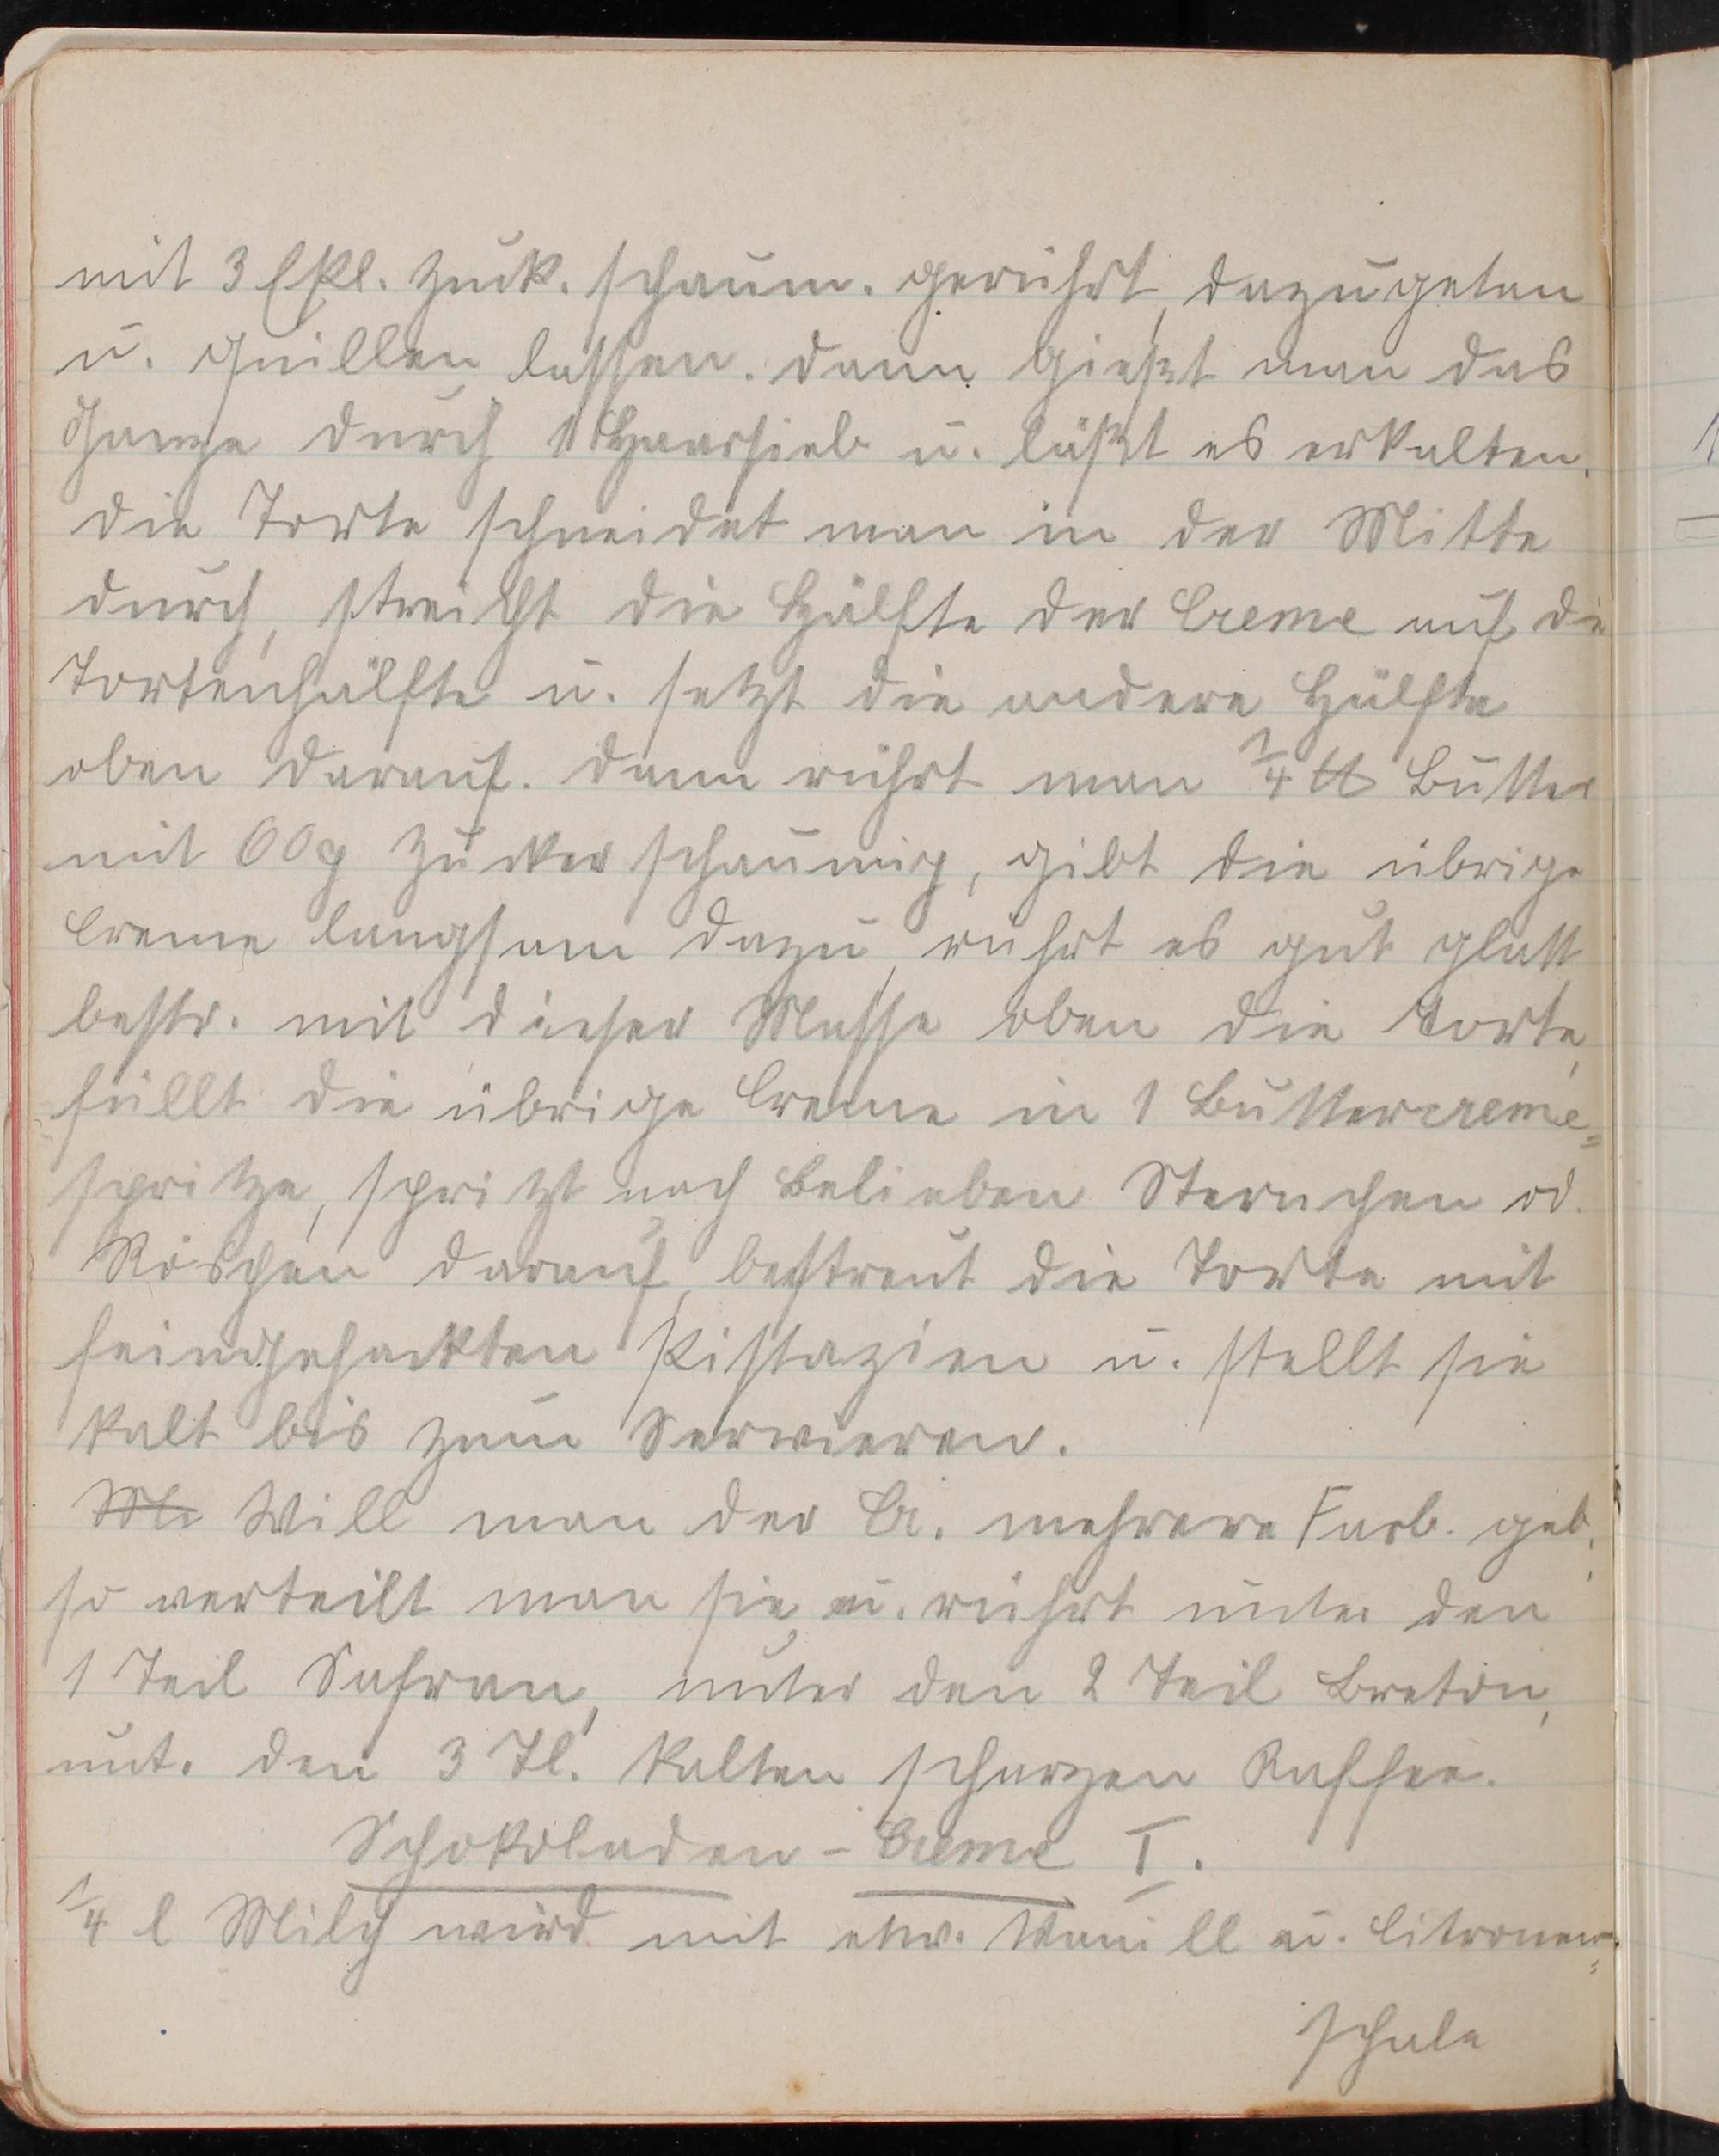 mit 3 Eßl. Zuck. schaum. gerührt, dazugetan
u. quillen lassen. Dann gießt man das
Ganze durch 1 Haarsieb u. läßt es erkalten.
Die Torte schneidet man in der Mitte
durch, streicht die Hälfte der Creme auf die
Tortenhälfte u. setzt die andere Hälfte
oben darauf. Dann rührt man 1/4 ℔ Butter
mit 60g Zucker schaumig, gibt die übrige
Creme langsam dazu, rührt es gut glatt,
bestr. mit dieser Masse oben die Torte,
füllt die übrige Creme in 1 Buttercreme=
spritze, spritzt nach Belieben Sternchen od.
Röschen darauf, bestreut die Torte mit
feingehackten Pistazien u. stellt sie
kalt bis zum Servieren.
Will man der Cr. mehrere Farb. geb.,
so verteilt man sie u. rührt unter den
1 Teil Safran, unter den 2 Teil Breton,
unt. den 3 Tl. kalten schwarzen Kaffee.
Schokoladen-Creme I.
1/4 l Milch wird mit etw. Vanill u. Citronen=
schale